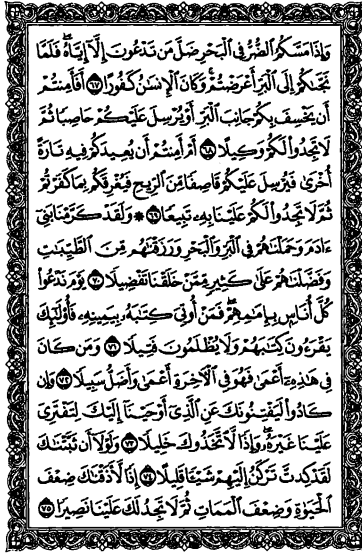 وَإِذَا مَسَّكُمُ ٱلضُّرُّ فِي ٱلْبَحْرِ ضَلَّ مَن تَدْعُونَ إِلَّآ إِيَّاهُ ۖ فَلَمَّا
نَجَّىٰكُمْ إِلَى ٱلْبَرِّ أَعْرَضْتُمْ ۚ وَكَانَ ٱلْإِنسَٰنُ كَفُورًا ۝٦٧ أَفَأَمِنتُمْ
أَن يَخْسِفَ بِكُمْ جَانِبَ ٱلْبَرِّ أَوْ يُرْسِلَ عَلَيْكُمْ حَاصِبًا ثُمَّ
لَا تَجِدُوا۟ لَكُمْ وَكِيلًا ۝٦٨ أَمْ أَمِنتُمْ أَن يُعِيدَكُمْ فِيهِ تَارَةً
أُخْرَىٰ فَيُرْسِلَ عَلَيْكُمْ قَاصِفًا مِّنَ ٱلرِّيحِ فَيُغْرِقَكُم بِمَا كَفَرْتُمْ ۙ
ثُمَّ لَا تَجِدُوا۟ لَكُمْ عَلَيْنَا بِهِۦ تَبِيعًا ۝٦٩ ۞ وَلَقَدْ كَرَّمْنَا بَنِىٓ
ءَادَمَ وَحَمَلْنَٰهُمْ فِي ٱلْبَرِّ وَٱلْبَحْرِ وَرَزَقْنَٰهُم مِّنَ ٱلطَّيِّبَٰتِ
وَفَضَّلْنَٰهُمْ عَلَىٰ كَثِيرٍ مِّمَّنْ خَلَقْنَا تَفْضِيلًا ۝٧٠ يَوْمَ نَدْعُوا۟
كُلَّ أُنَاسٍۭ بِإِمَٰمِهِمْ ۖ فَمَنْ أُوتِىَ كِتَٰبَهُۥ بِيَمِينِهِۦ فَأُو۟لَٰٓئِكَ
يَقْرَءُونَ كِتَٰبَهُمْ وَلَا يُظْلَمُونَ فَتِيلًا ۝٧١ وَمَن كَانَ
فِي هَٰذِهِۦٓ أَعْمَىٰ فَهُوَ فِي ٱلْءَاخِرَةِ أَعْمَىٰ وَأَضَلُّ سَبِيلًا ۝٧٢ وَإِن
كَادُوا۟ لَيَفْتِنُونَكَ عَنِ ٱلَّذِىٓ أَوْحَيْنَآ إِلَيْكَ لِتَفْتَرِىَ
عَلَيْنَا غَيْرَهُۥ ۖ وَإِذًا لَّٱتَّخَذُوكَ خَلِيلًا ۝٧٣ وَلَوْلَآ أَن ثَبَّتْنَٰكَ
لَقَدْ كِدتَّ تَرْكَنُ إِلَيْهِمْ شَيْـًٔا قَلِيلًا ۝٧٤ إِذًا لَّأَذَقْنَٰكَ ضِعْفَ
ٱلْحَيَوٰةِ وَضِعْفَ ٱلْمَمَاتِ ثُمَّ لَا تَجِدُ لَكَ عَلَيْنَا نَصِيرًا ۝٧٥